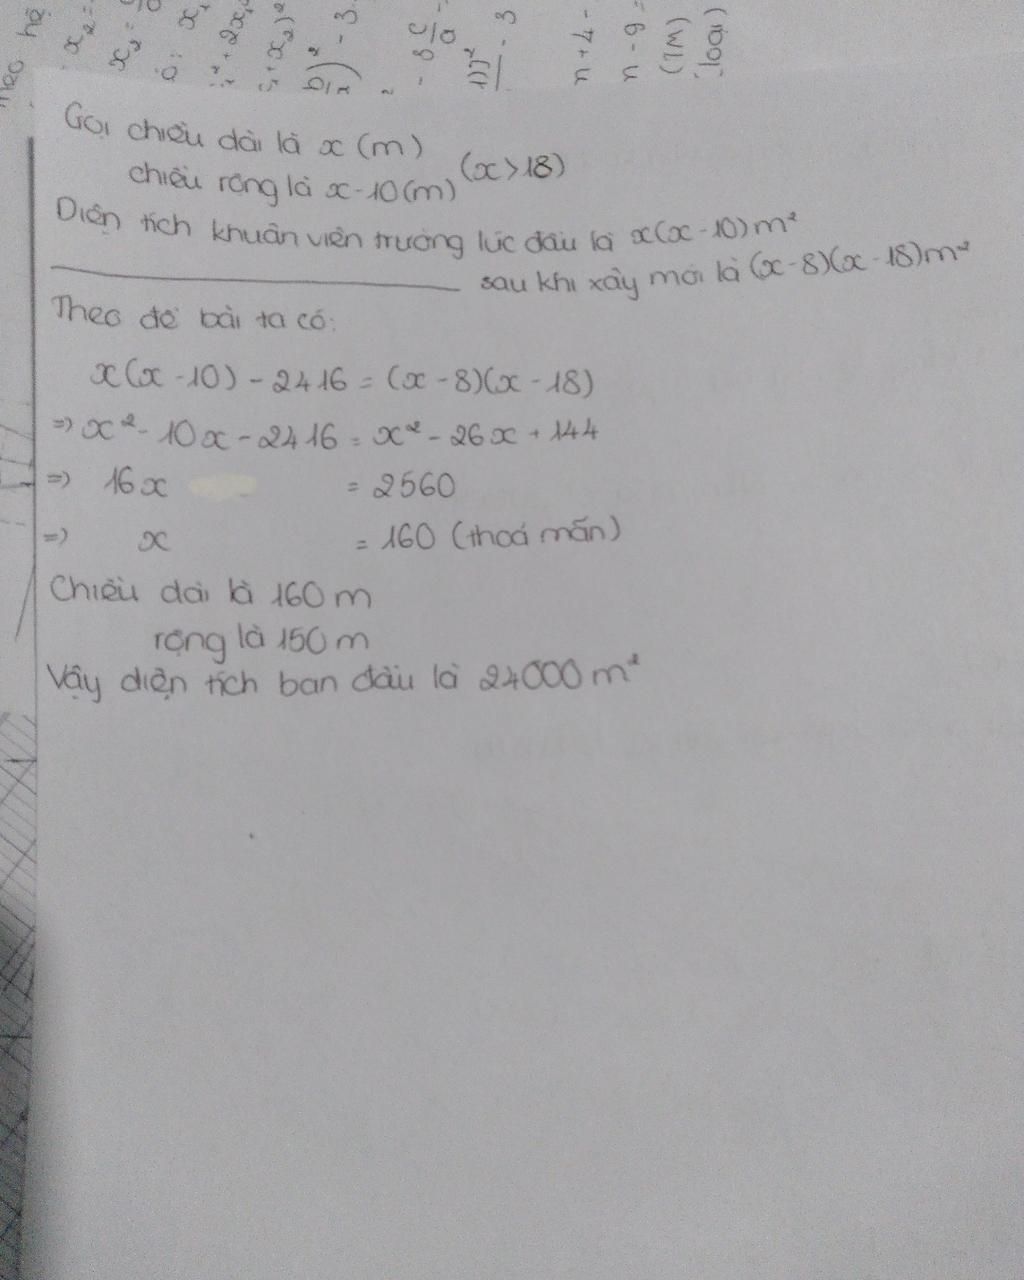 Gọi chiều dài là x (m)
chiều rộng là x-10(m) (x>18)
Diện tích khuân viên trường lúc đầu là x(x-10)m²
sau khi xây mới là (x-8)(x-18)m²
Theo đề bài ta có:
x(x-10) - 2416 = (x-8)(x-18)
=> x² - 10x - 2416 = x² - 26x + 144
=> 16x = 2560
=> x = 160 (thoả mãn)
Chiều dài là 160m
rộng là 150m
Vậy diện tích ban đầu là 24000m²